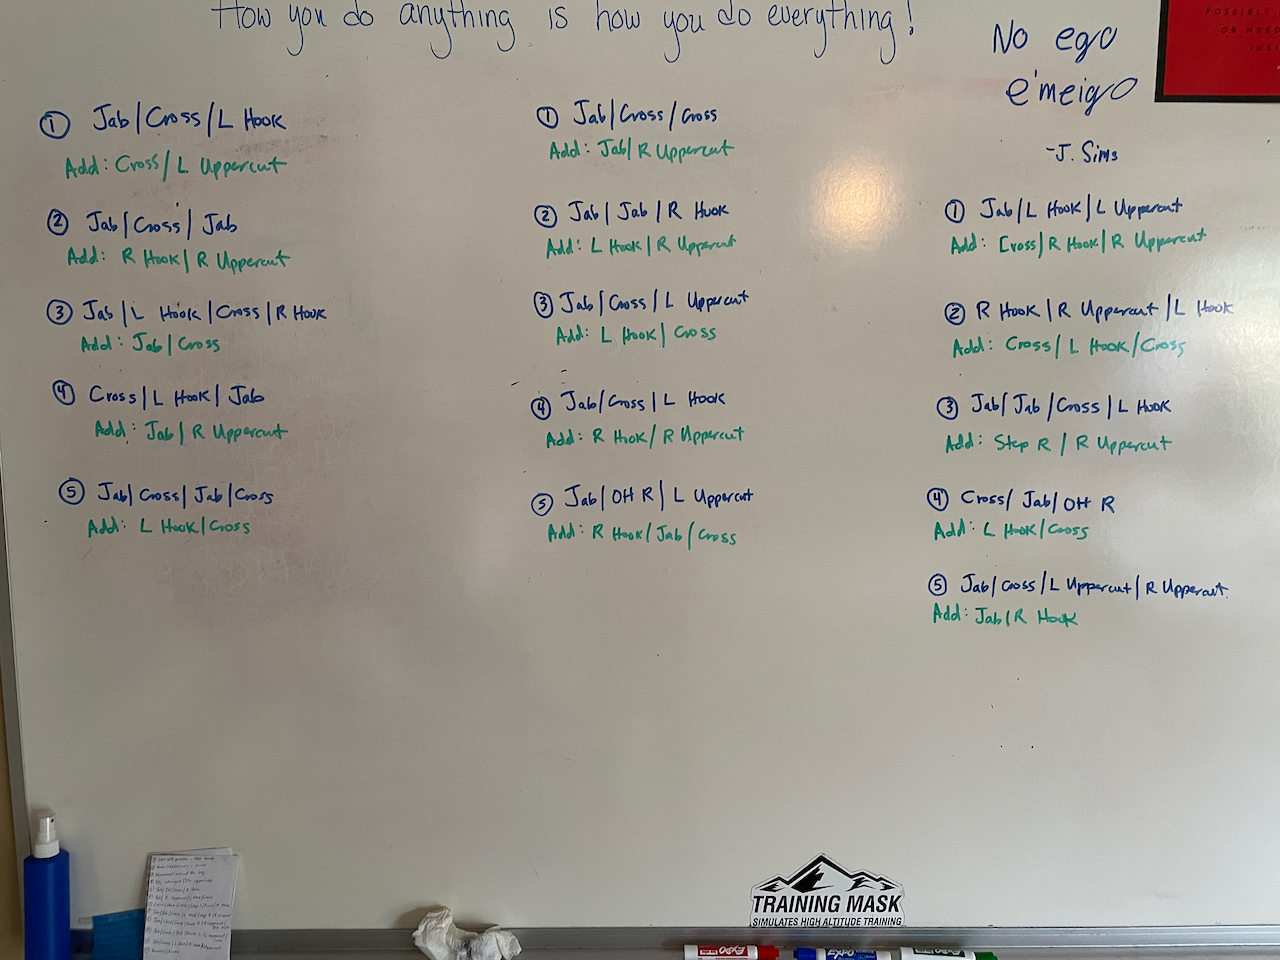 How you do anything is how you do everything!
No ego
e'meigo
-J. Sims
① Jab/Cross/L Hook
Add: Cross/L Uppercut
② Jab/Cross/Jab
Add: R Hook/R Uppercut
③ Jab/L Hook/Cross/R Hook
Add: Jab/Cross
④ Cross/L Hook/Jab
Add: Jab/R Uppercut
⑤ Jab/Cross/Jab/Cross
Add: L Hook/Cross
① Jab/Cross/Cross
Add: Jab/R Uppercut
② Jab/Jab/R Hook
Add: L Hook/R Uppercut
③ Jab/Cross/L Uppercut
Add: L Hook/Cross
④ Jab/Cross/L Hook
Add: R Hook/R Uppercut
⑤ Jab/OH R/L Uppercut
Add: R Hook/Jab/Cross
① Jab/L Hook/L Uppercut
Add: Cross/R Hook/R Uppercut
② R Hook/R Uppercut/L Hook
Add: Cross/L Hook/Cross
③ Jab/Jab/Cross/L Hook
Add: Step R/R Uppercut
④ Cross/Jab/OH R
Add: L Hook/Cross
⑤ Jab/Cross/L Uppercut/R Uppercut
Add: Jab/R Hook
POSSIBLE
OR NEED
TRAINING MASK
SIMULATES HIGH ALTITUDE TRAINING
EXPO
EXPO